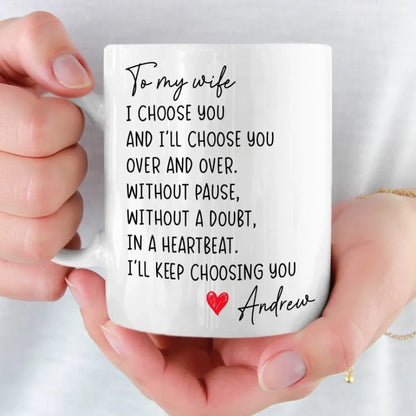 To my wife
I CHOOSE YOU
AND I'LL CHOOSE YOU
OVER AND OVER.
WITHOUT PAUSE,
WITHOUT A DOUBT,
IN A HEARTBEAT.
I'LL KEEP CHOOSING YOU
Andrew